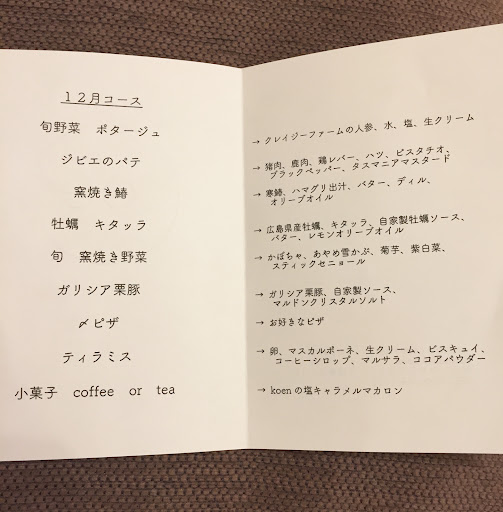 12月コース
旬野菜 ポタージュ
ジビエのパテ
窯焼き鰆
牡蠣 キタッラ
旬 窯焼き野菜
ガリシア栗豚
〆ピザ
ティラミス
小菓子 coffee or tea
→ クレイジーファームの人参、水、塩、生クリーム
→ 猪肉、鹿肉、鶏レバー、ハツ、ピスタチオ、
ブラックペッパー、タスマニアマスタード
→ 寒鰆、ハマグリ出汁、バター、ディル、
オリーブオイル
→ 広島県産牡蠣、キタッラ、自家製牡蠣ソース、
バター、レモンオリーブオイル
→ かぼちゃ、あやめ雪かぶ、菊芋、紫白菜、
スティックセニョール
→ ガリシア栗豚、自家製ソース、
マルドンクリスタルソルト
→ お好きなピザ
→ 卵、マスカルポーネ、生クリーム、ビスキュイ、
コーヒーシロップ、マルサラ、ココアパウダー
→ koenの塩キャラメルマカロン